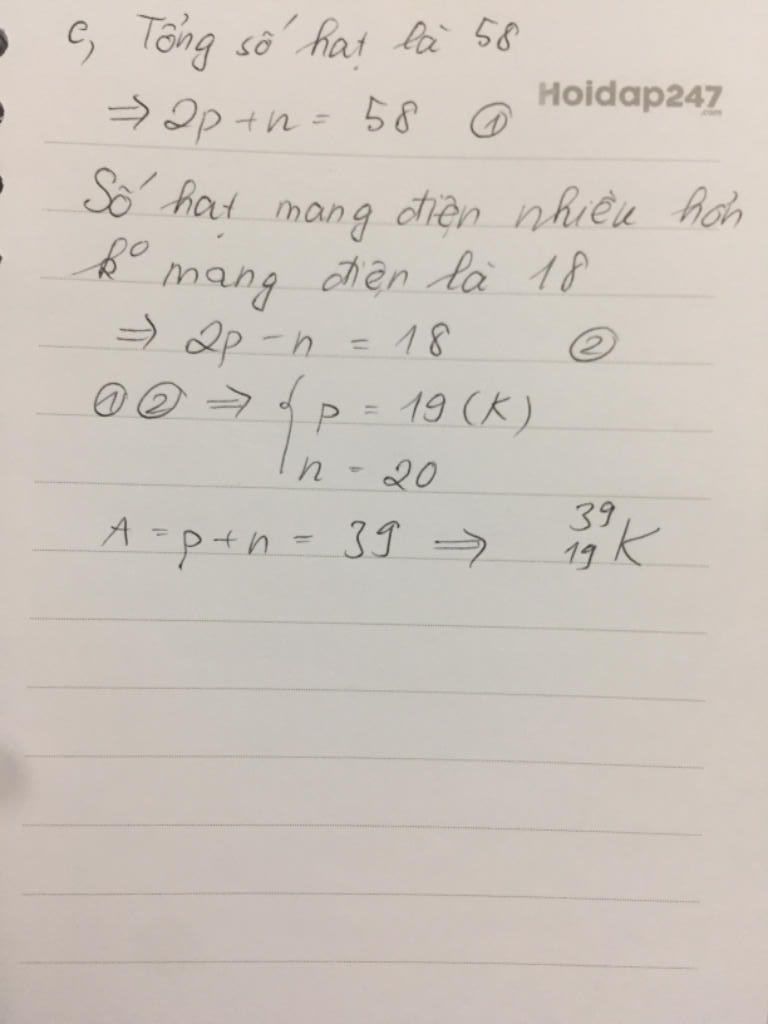 c, Tổng số hạt là 58
Hoidap247
.com
⇒ 2p + n = 58 ①
Số hạt mang điện nhiều hơn
k⁰ mang điện là 18
⇒ 2p - n = 18 ②
① ② ⇒ { p = 19 (K)
n = 20
A = p + n = 39 ⇒ ³⁹₁₉K